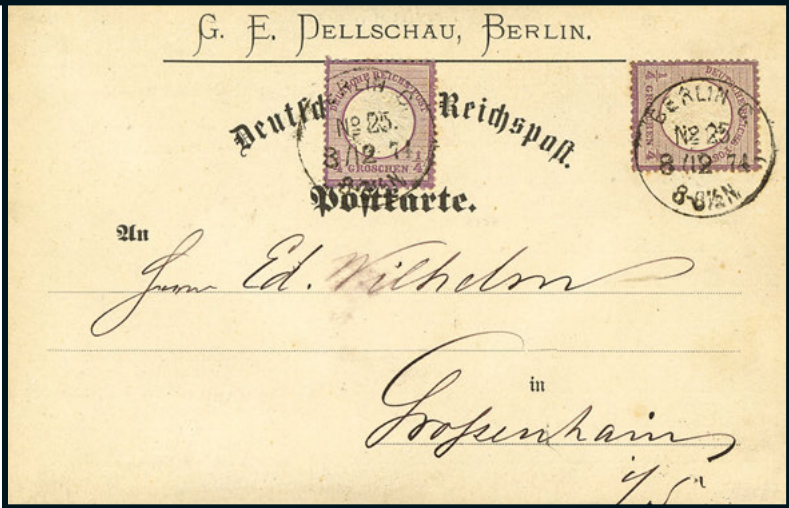 G. E. DELLSCHAU, BERLIN.
Deutsche Reichspost.
DEUTSCHE REICHS-POST
1/4 GROSCHEN 1/4
BERLIN C.
No 25.
8/12 74
8-8½N.
DEUTSCHE REICHS-POST
1/4 GROSCHEN 1/4
BERLIN C.
No 25
8/12 74
8-8½N.
Postkarte.
An
Herrn Ed. Wilhelm
in
Grossenhain
i/S